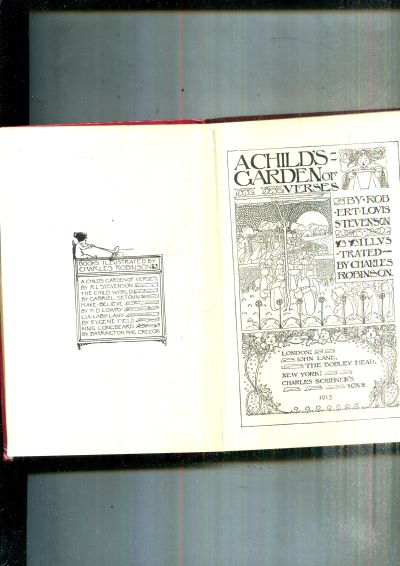 BOOKS ILLUSTRATED BY
CHARLES ROBINSON
A CHILD'S GARDEN OF VERSES
BY R.L. STEVENSON
THE CHILD WORLD
BY GABRIEL SETOUN
MAKE-BELIEVE
BY H.D. LOWRY
LULLABY LAND
BY EUGENE FIELD
KING LONGBEARD
BY BARRINGTON MAC GREGOR
A CHILD'S
GARDEN OF
VERSES
BY ROB
ERT LOUIS
STEVENSON
ILLUS
TRATED
BY CHARLES
ROBINSON.
LONDON:
JOHN LANE,
THE BODLEY HEAD,
NEW YORK:
CHARLES SCRIBNER'S
SONS
1913